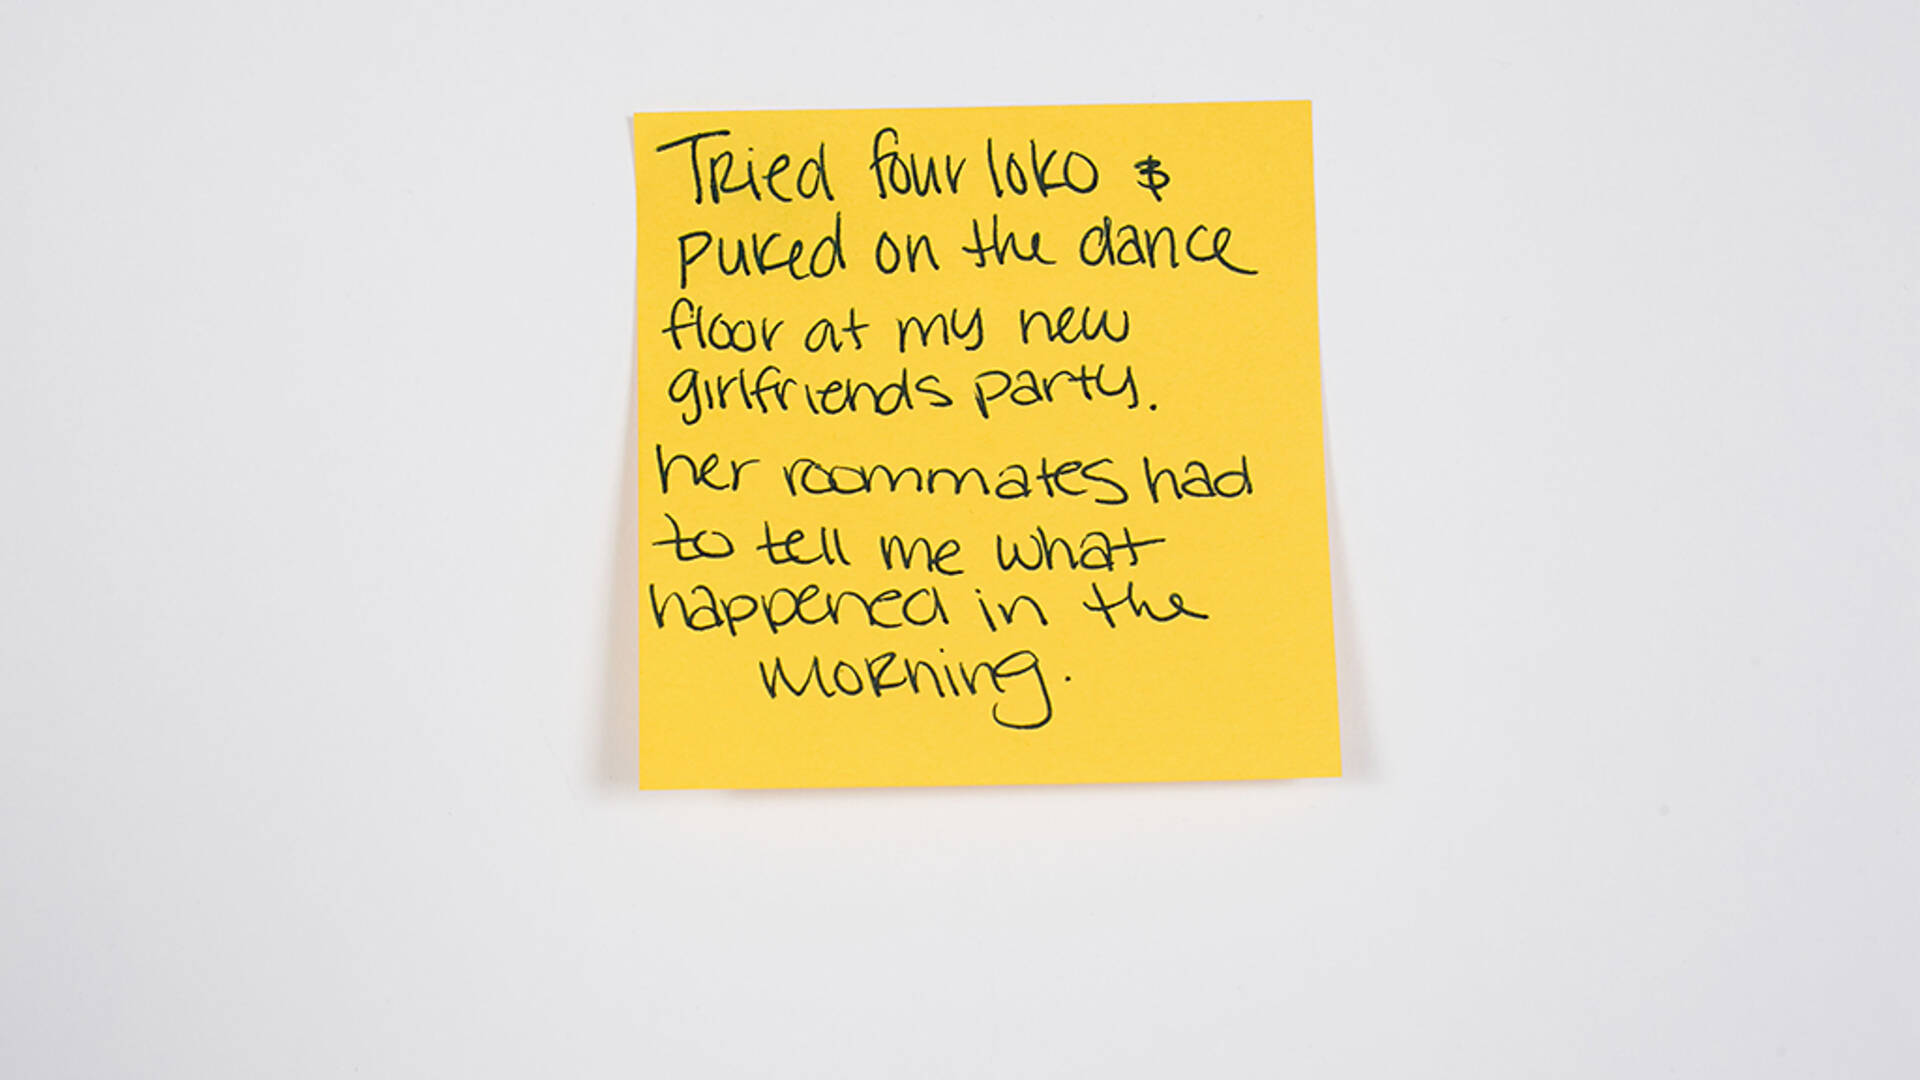 Tried four loko &
puked on the dance
floor at my new
girlfriends party.
her roommates had
to tell me what
happened in the
morning.